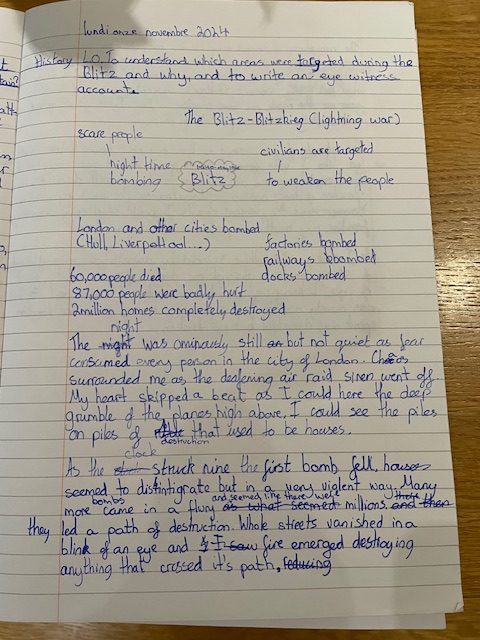 lundi onze novembre 2024
History L.O. To understand which areas were targeted during the
Blitz and why, and to write an eye witness
account.
The Blitz-Blitzkieg (lightning war)
scare people
civilians are targeted
night time
bombing
Blitz
to weaken the people
London and other cities bombed
(Hull, Liverpool...)
factories bombed
railways bombed
docks bombed
60,000 people died
87,000 people were badly hurt
2 million homes completely destroyed
night
The night was ominously still but not quiet as fear
consumed every person in the city of London. Chaos
surrounded me as the deafening air raid siren went off.
My heart skipped a beat as I could here the deep
grumble of the planes high above. I could see the piles
on piles of that used to be houses.
destruction
clock
As the struck nine the first bomb fell, houses
seemed to distintigrate but in a very violent way. Many
bombs and seemed like there were
more came in a flury as what seemed millions. and then
they led a path of destruction. Whole streets vanished in a
blink of an eye and I saw fire emerged destroying
anything that crossed it's path, reducing